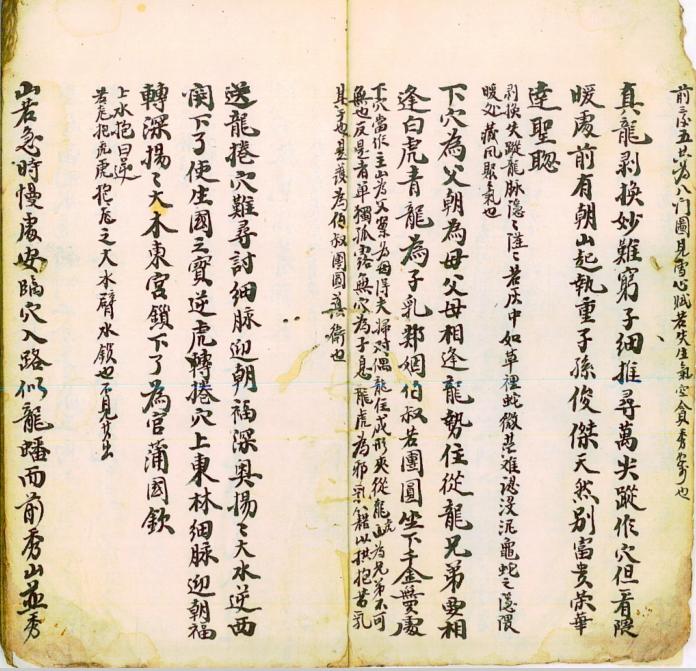 前三吉五凶为八门圖見雪心賦若失生氣空貪秀
真龍剥換妙難窮子細推尋萬失蹤作穴但看隈
暖處前有朝山起執重子孫俊傑天然别富貴荣華
達聖聰
剥換失蹤龍脉隱〻若灰中如草裡蛇微茫难認没泥龜蛇之隱隈
暖处藏风聚氣也
下穴為父朝為母父母相逢龍勢住從龍兄弟要相
逢白虎青龍為子乳鄰姻伯叔若團圓坐下千金無處
下穴當作主山為父案为母得夫婦对偶龍住成形夹從龍虎山為兄弟不可
無也反是有单獨孤露與穴為子息龍虎為邪乳籍以拱抱若乳
其子也是護為伯叔團圓養衛也
送龍捲穴難尋討細脉迎朝福深奥揚〻大水逆西
関下了使生國之寳逆虎轉捲穴上東林細脉迎朝福
轉深揚〻大木東宮鎖下了為官蒲國欽
上水抱曰逆
若龙抱虎虎抱龙之大水臂水鎖也不見其出
山若急時慢處安隔穴入路似龍蟠而前秀山並秀